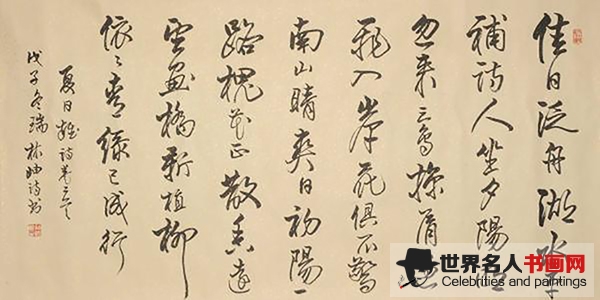 佳日泛舟湖
詩人坐夕陽
忽来鸟掠肩
飛入岸花俱不驚
南山晴爽日初陽一
路槐花正散香遠
望畫橋新植柳
依〻青綠已成行
夏日雜詩
戊子冬瑞林詩书
世界名人书画网
Celebrities and paintings